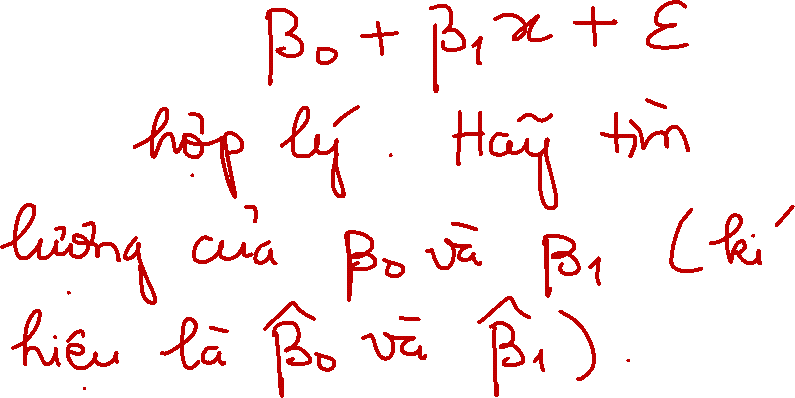 β₀ + β₁x + ε
hợp lý. Hãy tìm
lượng của β₀ và β₁ (kí
hiệu là β̂₀ và β̂₁).